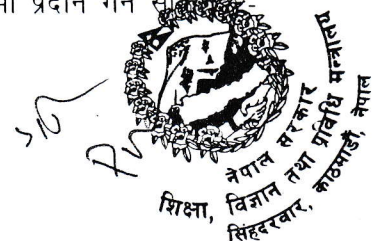 प्रदान गर्ने
नेपाल सरकार
शिक्षा, विज्ञान तथा प्रविधि मन्त्रालय
सिंहदरवार, काठमाडौं, नेपाल